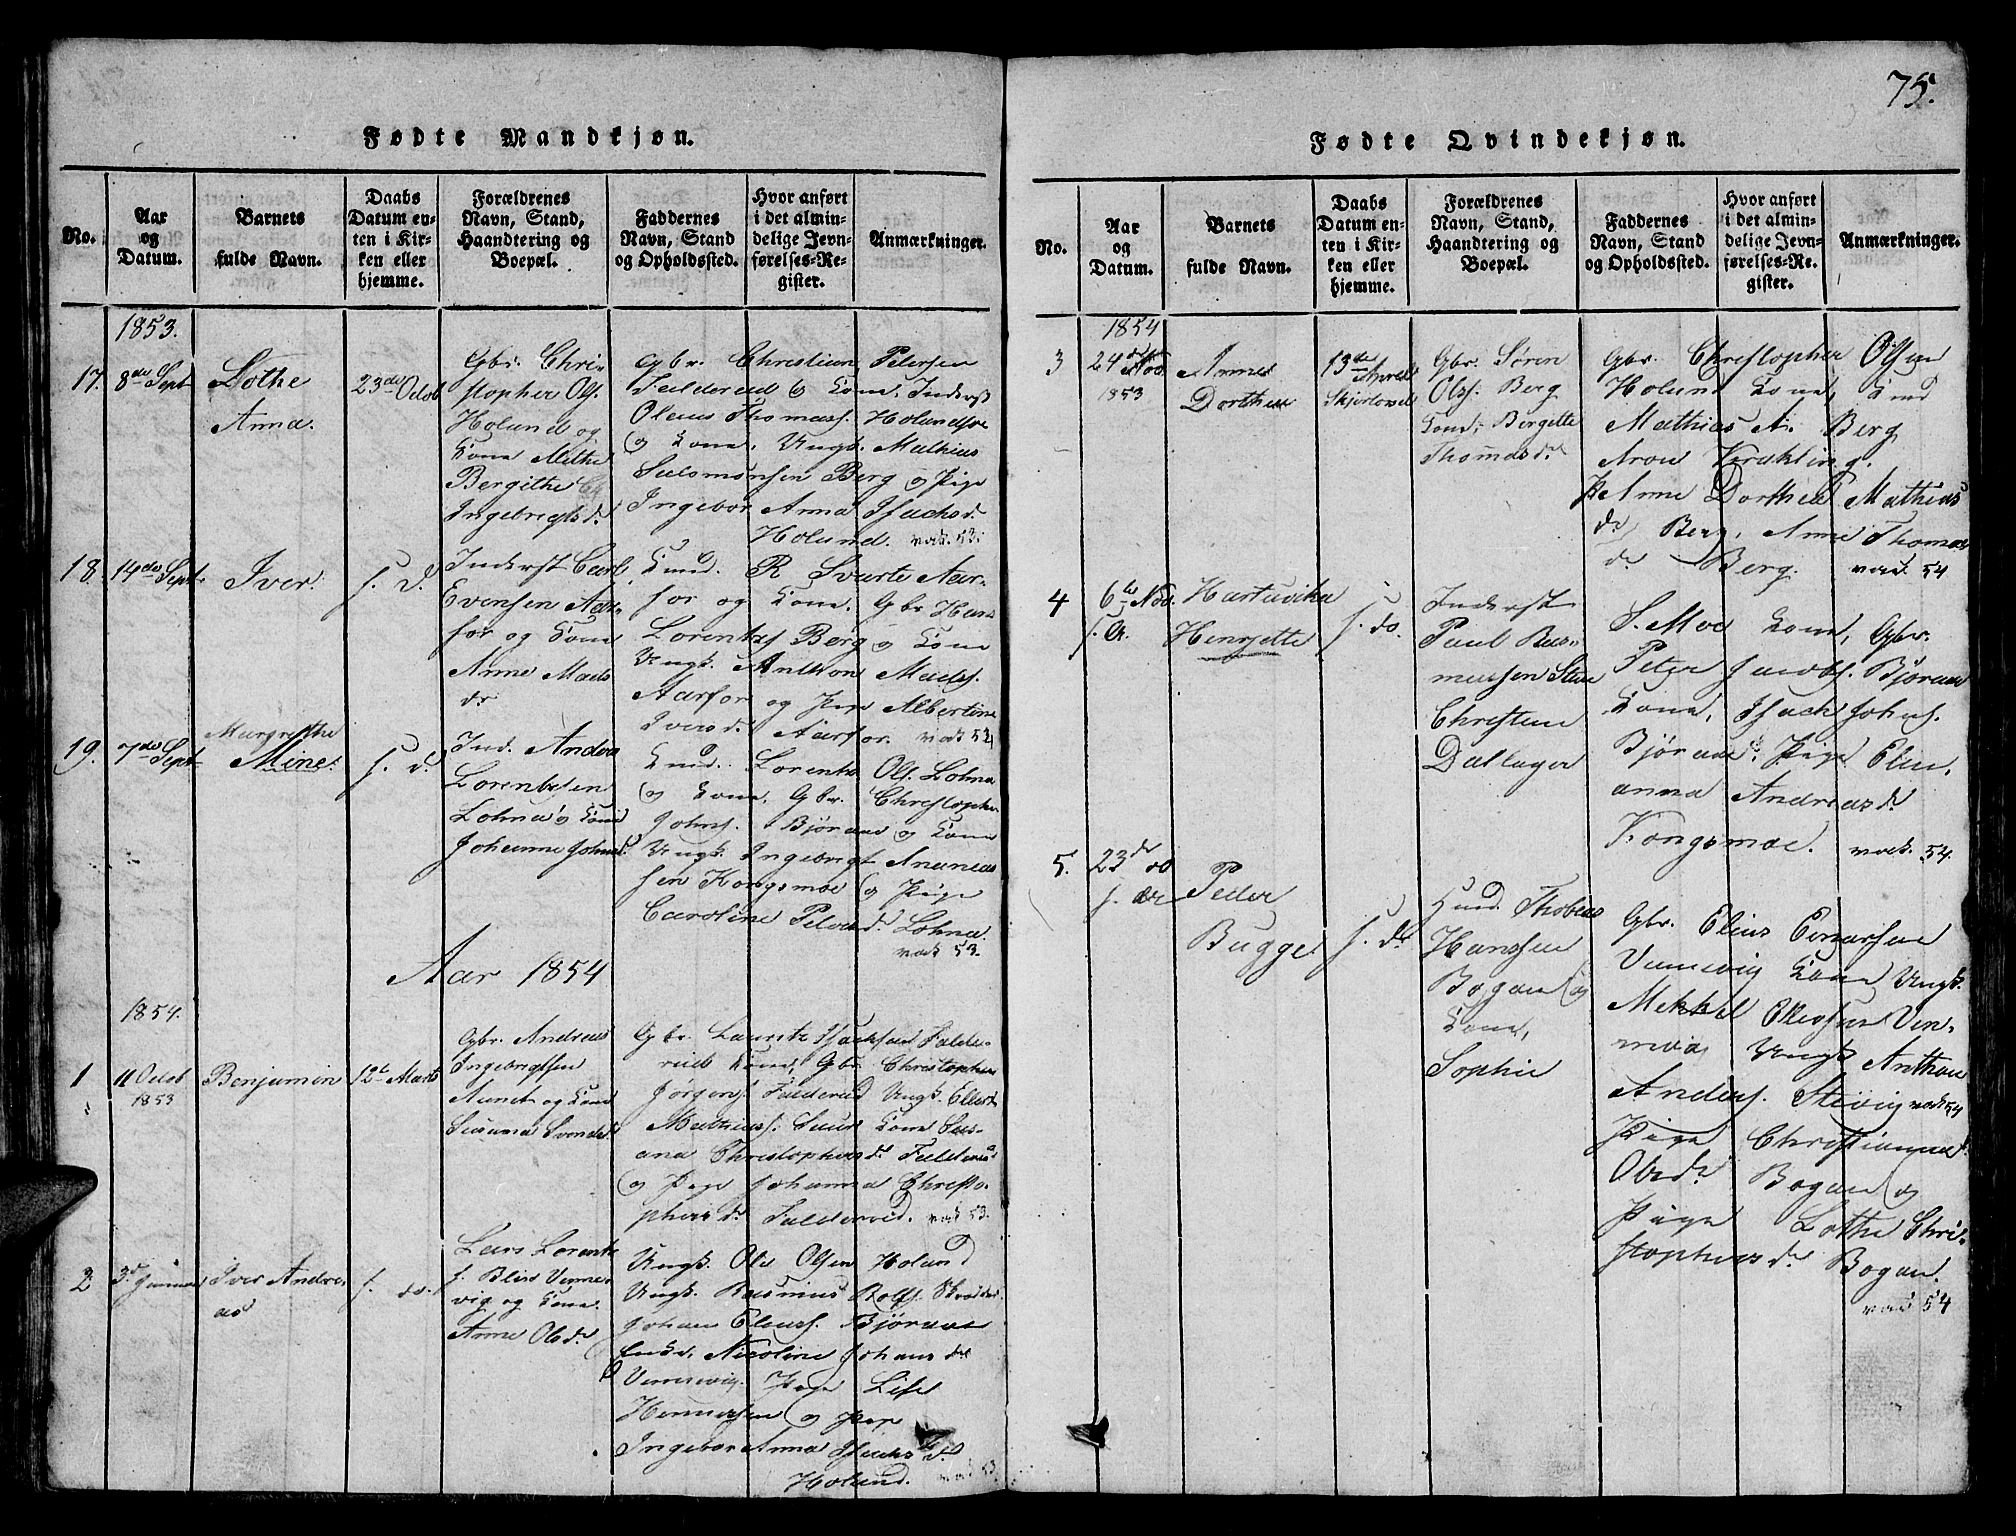 75.
Fødte Mandkjøn.
No.
Aar
og
Datum.
Barnets
fulde Navn.
Daabs
Datum en-
ten i Kir-
ken eller
hjemme.
Forældrenes
Navn, Stand,
Haandtering og
Boepæl.
Faddernes
Navn, Stand
og Opholdssted.
Hvor anført
i det almin-
delige Jevn-
førelses-Re-
gister.
Anmærkninger.
1853.
17. 8de Sept
Lothe
Anna.
23de Octob
Gbr. Chri-
stopher Ols.
Holund og
Kone Mette
Bergitha
Ingebrigtsdr.
Gbr. Christian Petersen
Falderud & Kone, Inderst
Olaus Thomass. Holundsve
og Kone, Ungk. Mathias
Salomonsen Berg og Pige
Ingebor Anna Isachsdr.
Holund. vac. 53.
18. 14de Sept.
Iver.
s. d.
Inderst Carl
Evensen Aar-
for og Kone
Anne Mads
dr
Huusmd. R Svarte Aar-
for og Kone. Gbr Hans
Lorents Berg og Kone
Ungk. Anthon Madss.
Aarfor og Pige Albertine
Iversdr. Aarfor. vact 52
19. 7de Sept
Margrethe
Mine.
s. d.
Ind. Andrea
Lorentsen
Lohna og Kone
Johanne Johnsdr.
Huusmd. Lorents Ols. Lohna
og Kone, Gbr. Christopher
Johns. Bjøraae og Kone
Ungk. Ingebrigt Ananias
sen Kongsmoe og Pige
Caroline Petersdr. Lohna.
vact 53.
Aar 1854
1854.
1 11 Octob
1853
Benjamin
12te Marts
Gbr. Andreas
Ingebrigtsen
Aunet og Kone
Susanna Svendsdr.
Gbr. Lauritz Isachsen Falde-
rud Kone, Gbr Christopher
Jørgens. Falderud Ungk. Elert
Mathiass. Kone Sus-
ana Christophersdr. Falderud
og Pige Johanna Christo-
phersdr. Falderud. vact 53.
2 3d Januar
Iver Andre-
as
s. do.
Lars Lorents
s. Vennes-
vig og Kone
Anne Olsdr
Ungk. Ole Olsen Holund
Ungk. Rasmus Rolfs.
Johan Eliass. Bjøraae
Enke, Nicoline Johansdr
Vennesvig. Pige Lise
og Pige
Ingebor Anna Isachsdr.
Holund. vact 53
Fødte Qvindekjøn.
No.
Aar
og
Datum.
Barnets
fulde Navn.
Daabs
Datum en-
ten i Kir-
ken eller
hjemme.
Forældrenes
Navn, Stand,
Haandtering og
Boepæl.
Faddernes
Navn, Stand
og Opholdssted.
Hvor anført
i det almin-
delige Jevn-
førelses-Re-
gister.
Anmærkninger.
1854
3 24de Nov
1853
Anne
Dorthea
13de April
Gbr. Søren
Olss. Berg
Kone, Bergitte
Thomasdr.
Gbr. Christopher Olsen
Holund Kone,
Mathias A. Berg
Aron Krækling.
P. Anne Dorthea Mathias
dr Berg, Anne Thomas
dr. Berg. vact. 54
4 6te Nov.
f. A.
Hartvika
Henrjette
s. do.
Inderst
Paul Ras-
mussen
Christine
Dallager
S. Moe Kone, Gbr.
Peter Jacobs. Bjøraae
Kone, Isach Johns.
Bjøraae. Pige Elen
anna Andreasdr.
Kongsmoe. vact. 54.
5. 23de do
f. Ar
Peder
Bugge
s. do
Huusmd. Thobias
Hanssen
Bogan og
Kone,
Sophie
Gbr. Elias Enarsen
Vennesvig Kone Ungk.
Mekkel Ellevsen Ven-
Ungk Anthon
Anders. Steivig vact 54
Pige Christianna
Olsdr Bogan og
Pige Lothe Chri-
stophersdr Bogan.
vact 54